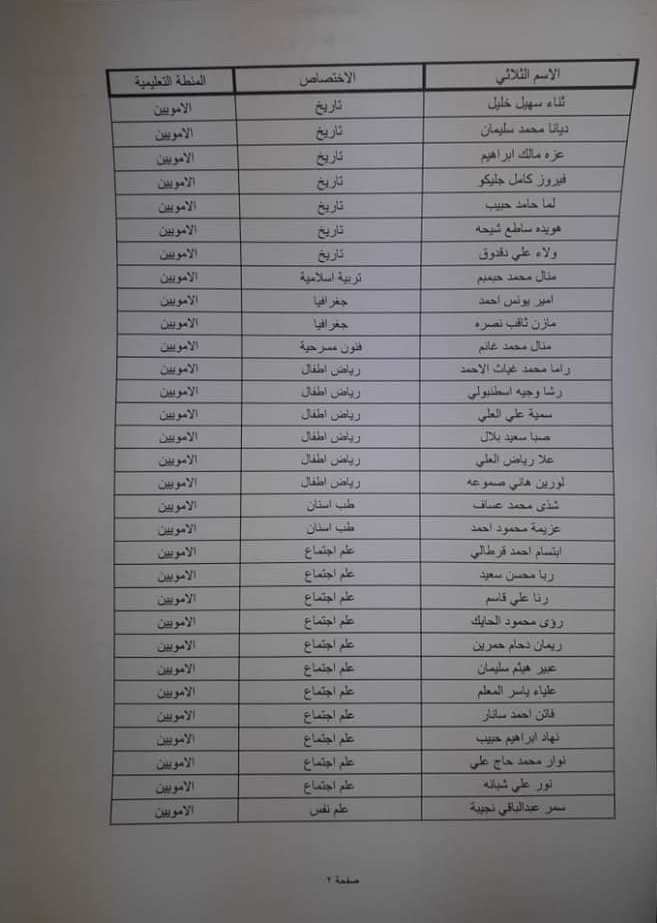 الاسم الثلاثي الاختصاص المنطة التعليمية
ثناء سهيل خليل تاريخ الامويين
ديانا محمد سليمان تاريخ الامويين
عزه مالك ابراهيم تاريخ الامويين
فيروز كامل جليكو تاريخ الامويين
لما حامد حبيب تاريخ الامويين
هويده ساطع شيحه تاريخ الامويين
ولاء علي دقدوق تاريخ الامويين
منال محمد حبميم تربية اسلامية الامويين
امير يونس احمد جغرافيا الامويين
مازن ثاقب نصره جغرافيا الامويين
منال محمد غانم فنون مسرحية الامويين
راما محمد غياث الاحمد رياض اطفال الامويين
رشا وجيه اسطنبولي رياض اطفال الامويين
سمية علي العلي رياض اطفال الامويين
صبا سعيد بلال رياض اطفال الامويين
علا رياض العلي رياض اطفال الامويين
لورين هاني صموعه رياض اطفال الامويين
شذى محمد عساف طب اسنان الامويين
عزيمة محمود احمد طب اسنان الامويين
ابتسام احمد قرطالي علم اجتماع الامويين
ربا محسن سعيد علم اجتماع الامويين
رنا علي قاسم علم اجتماع الامويين
رؤى محمود الحايك علم اجتماع الامويين
ريمان دحام حمرين علم اجتماع الامويين
عبير هيثم سليمان علم اجتماع الامويين
علياء ياسر المعلم علم اجتماع الامويين
فاتن احمد سانار علم اجتماع الامويين
نهاد ابراهيم حبيب علم اجتماع الامويين
نوار محمد حاج علي علم اجتماع الامويين
نور علي شبانه علم اجتماع الامويين
سمر عبدالباقي نجيبة علم نفس الامويين
صفحة ٢